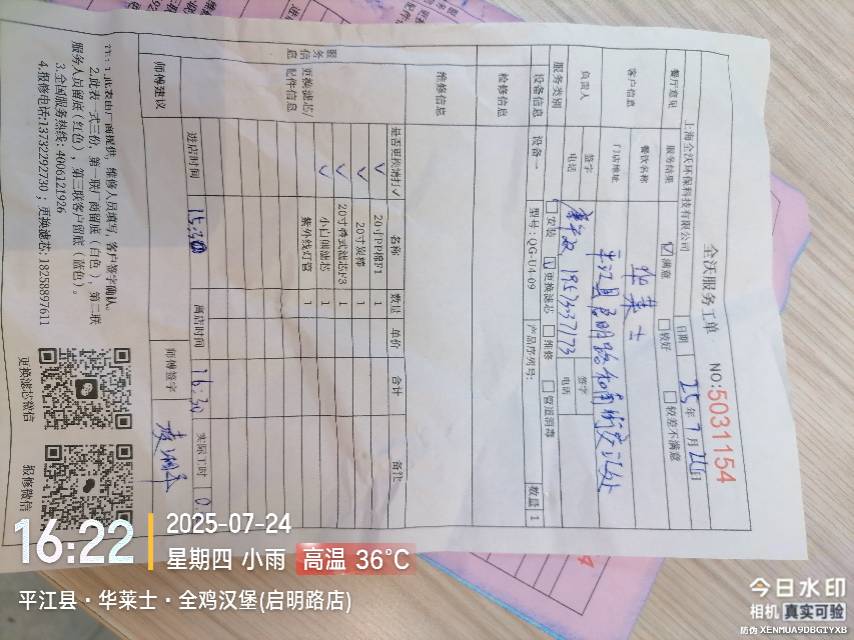 全沃服务工单
NO:5031154
上海全沃环保科技有限公司
日期 25年7月24日
餐厅意见 服务结果 ☑满意 □较好 □较差不满意
客户信息 餐饮名称 华莱士
门店地址 平江县启明路和
负责人 签字 签字
电话 19573737173 电话
服务类别 □安装 ☑更换滤芯 □维修 □管道消毒
设备信息 设备一 型号:QG-U4-09 产品序列号: 数量 1
检修信息
维修信息
服务信息
更换滤芯/配件信息
是否更换请打√ 名称 数量 单价 合计 备注
✓ 20寸PP棉F1 1
✓ 20寸炭棒 1
✓ 20寸叠式滤芯F3 1
✓ 小白圆滤芯 1
紫外线灯管 1
师傅建议
进店时间 15:30 离店时间 16:30 实际工时 0.
师傅签字
注:1.此表由厂商提供,维修人员填写,客户签字确认。
2.此表一式三份,第一联厂商留底(白色),第二联
服务人员留底(红色),第三联客户留底(蓝色)。
3.全国服务热线:4006121926
4.报修电话:13732292730;更换滤芯:18258897611
更换滤芯微信
报修微信
16:22
2025-07-24
星期四 小雨 高温 36°C
平江县·华莱士·全鸡汉堡(启明路店)
今日水印
相机 真实可验
防伪 XENMUA9DBGTYXB